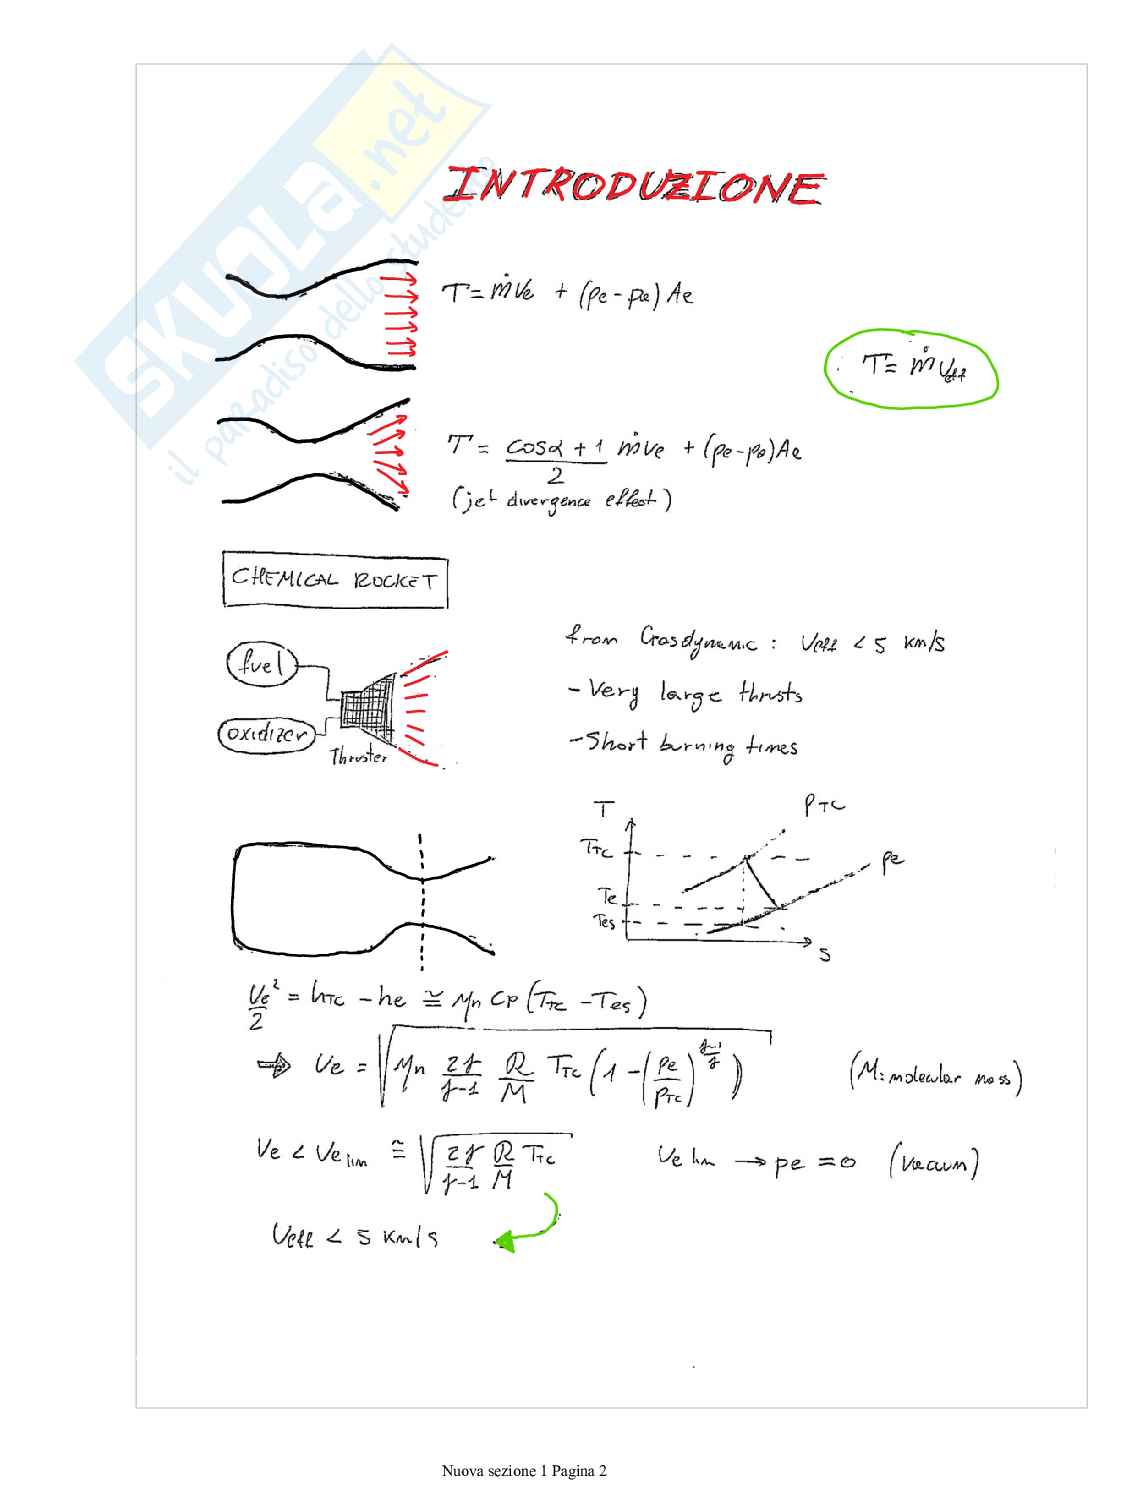 SKUOLA.net
il paradiso dello studente
INTRODUZIONE
T = ṁ Ve + (pe - pa) Ae
T = ṁ Veff
T = (cosα + 1)/2 ṁ Ve + (pe - pa) Ae
(jet divergence effect)
CHEMICAL ROCKET
fuel
oxidizer
Thruster
from Gasdynamic : Veff < 5 km/s
- Very large thrusts
- Short burning times
T
PTC
TTC
pe
Te
Tes
s
Ve²/2 = hTC - he ≅ ηn Cp (TTC - Tes)
⇒ Ve = √(ηn 2γ/(γ-1) R/M TTC (1 - (pe/pTC)^((γ-1)/γ)))
(M: molecular mass)
Ve < Ve lim ≅ √(2γ/(γ-1) R/M TTC)
Ve lim → pe = 0 (vacuum)
Veff < 5 km/s
Nuova sezione 1 Pagina 2